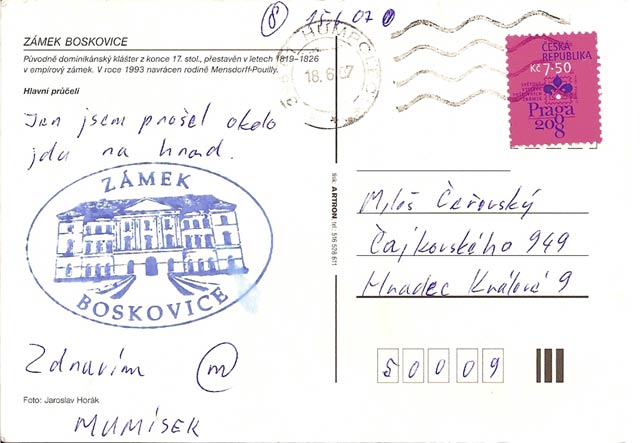 8 15/6 07
ZÁMEK BOSKOVICE
Původně dominikánský klášter z konce 17. stol., přestavěn v letech 1819–1826
v empírový zámek. V roce 1993 navrácen rodině Mensdorff-Pouilly.
Hlavní průčelí
Jen jsem prošel okolo
jdu na hrad.
ZÁMEK
BOSKOVICE
Zdravím m
Foto: Jaroslav Horák
MUMÍSEK
HUMPOLEC
18.6.07
ČESKÁ
REPUBLIKA
Kč 7·50
Praga
2008
tisk ARTRON tel. 516 526 611
Miloš Čeřovský
Čajkovského 949
Hradec Králové 9
50009